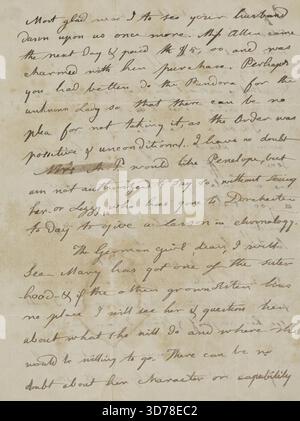 Most glad was I to see your husband
dawn upon us once more. Miss Allen came
the next day & paid the $75, 00, and was
charmed with her purchase. Perhaps
you had better do the Pandora for the
unknown lady so that there can be no
plea for not taking it, as the order was
positive & unconditional. I have no doubt
Mrs. A. P would like Penelope, but
am not authorized to say so, without seeing
her or Lizzy who has gone to Dorchester
to day to give a lesson in chronology.
The German girl, dear, I will
see. Mary has got one of the sister
hood & if the other grown sister has
no place I will see her & question her
about what she will do and where she
would be willing to go. There can be no
doubt about her character or capability
alamy
Image ID: 3D78EC2
www.alamy.com